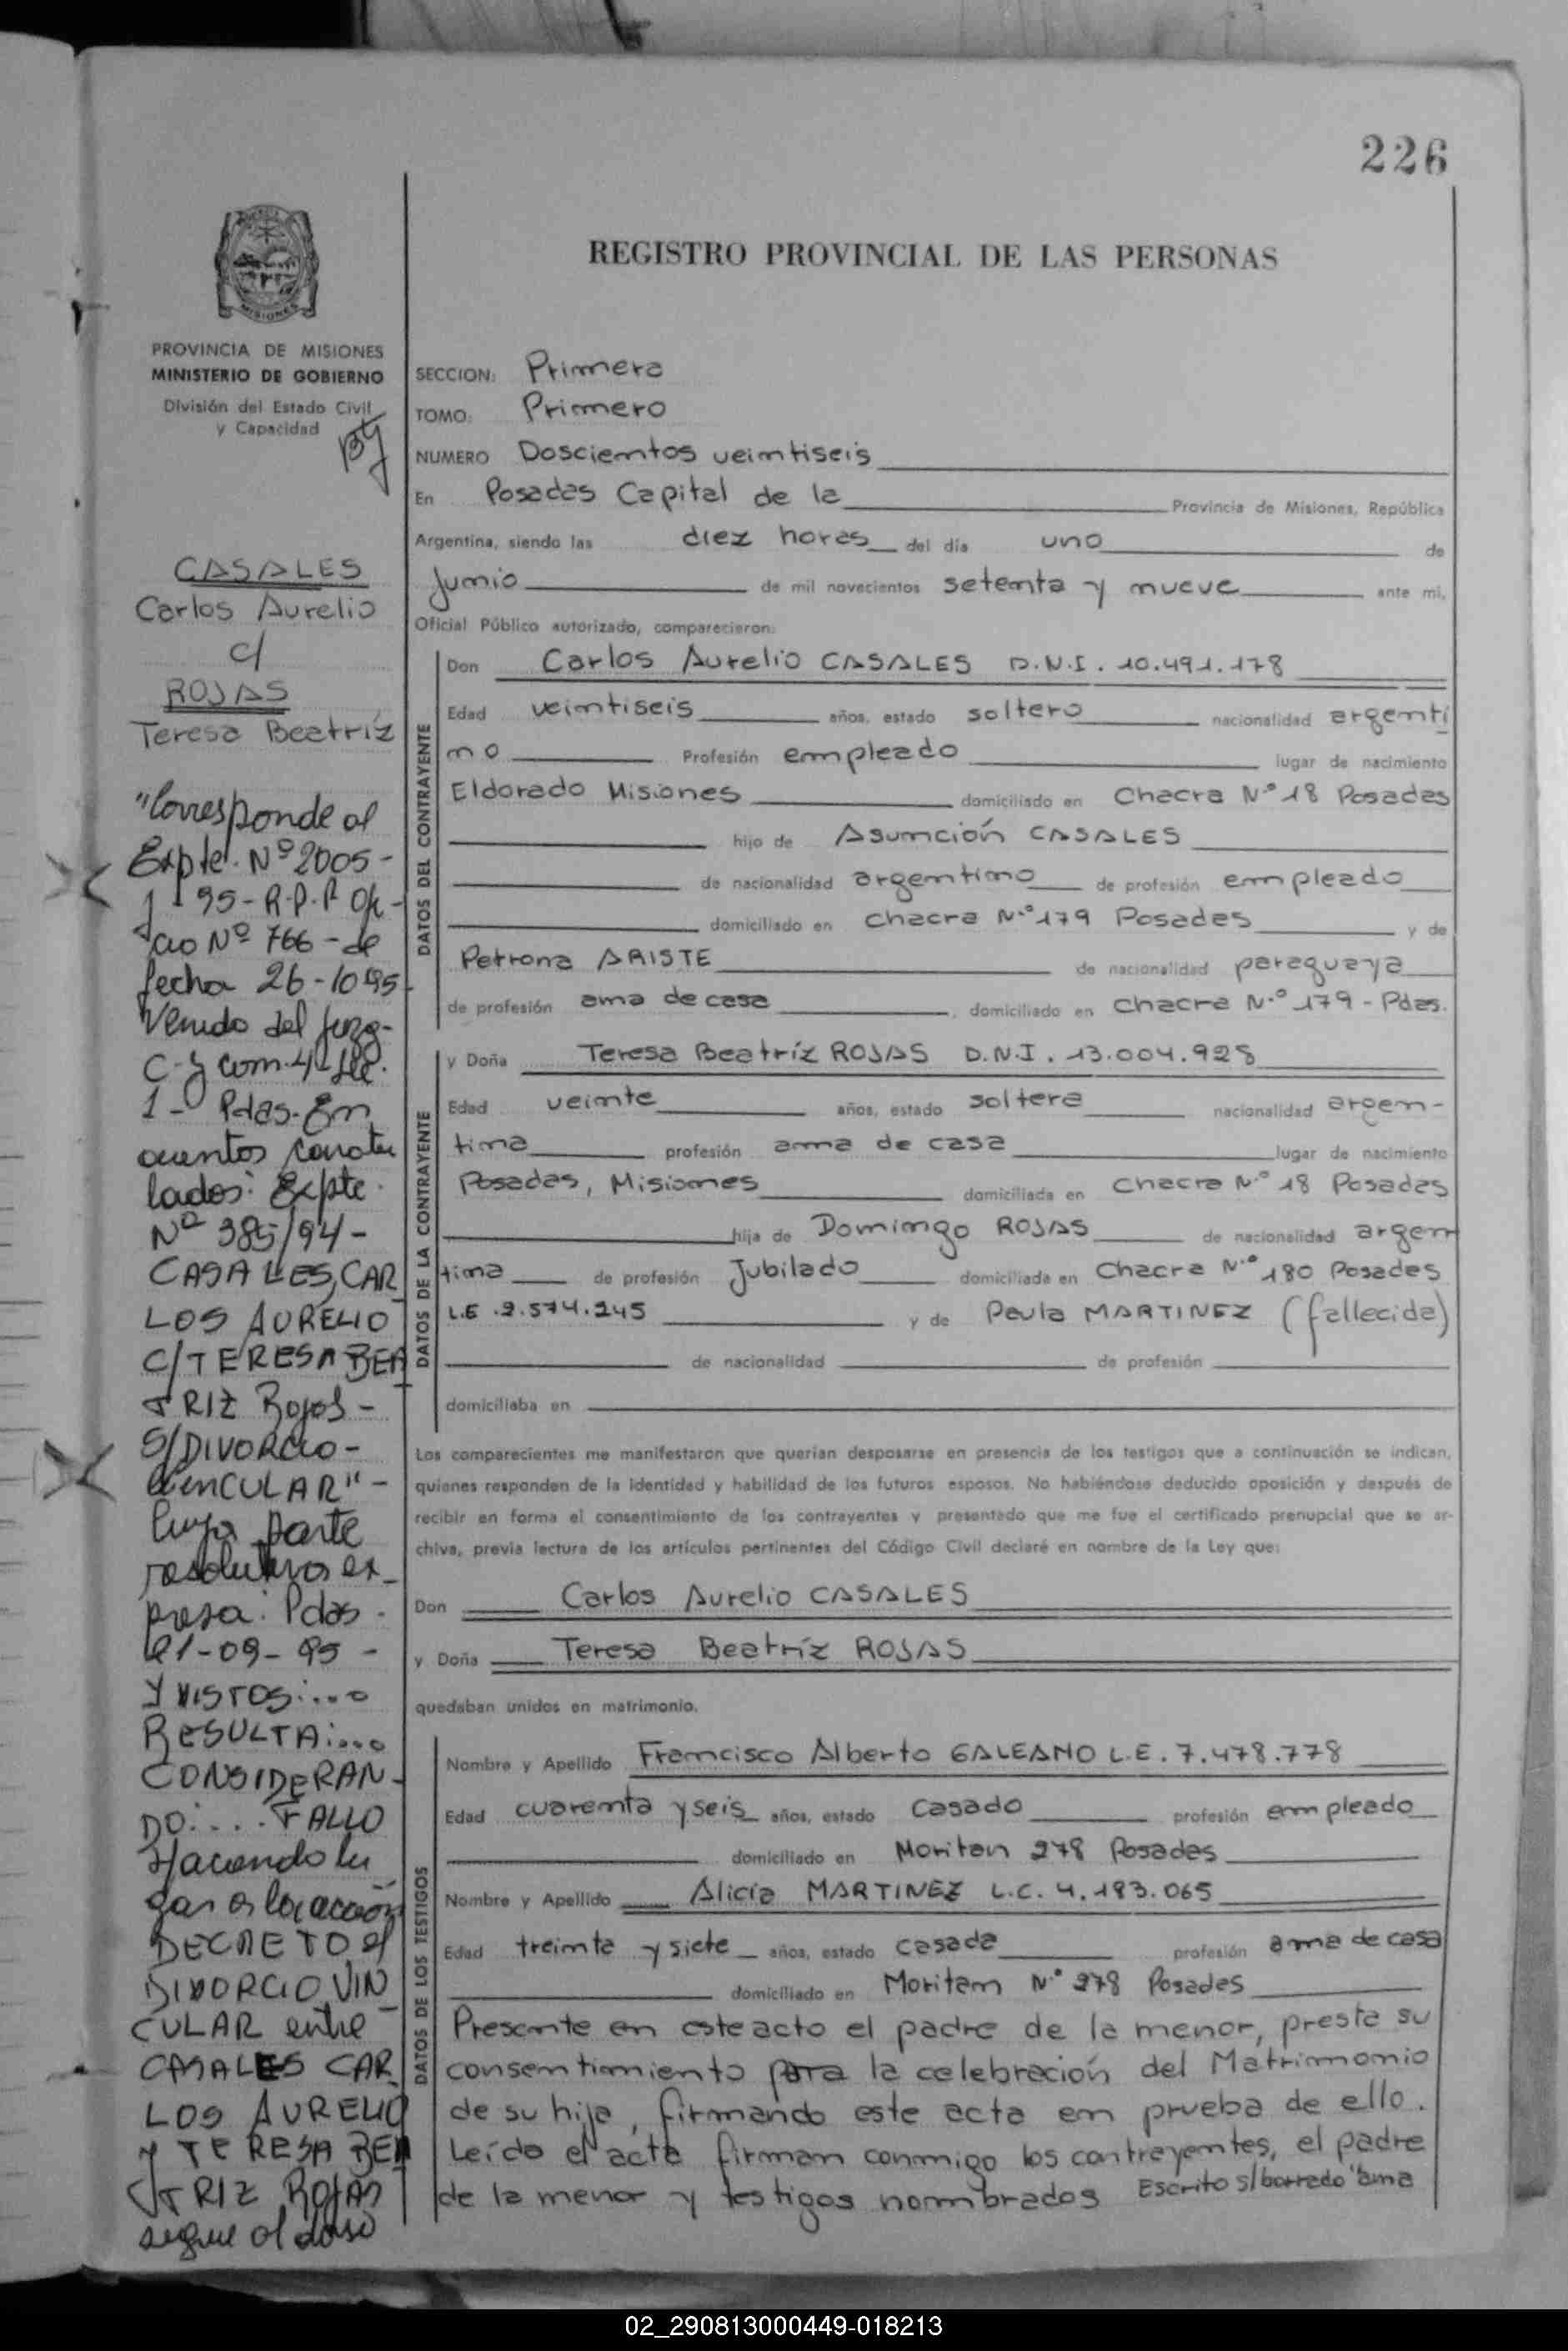 226
REGISTRO PROVINCIAL DE LAS PERSONAS
MISIONES
PROVINCIA DE MISIONES
MINISTERIO DE GOBIERNO
División del Estado Civil
y Capacidad
CASALES
Carlos Aurelio
c/
ROJAS
Teresa Beatríz
"Corresponde al
Expte. Nº 2005-
95-R.P.P Ofi-
cio Nº 766-de
fecha 26-10-95
Venido del Juzg-
C. y Com. 4
1- Pdas. En
autos caratu
lados: Expte.
Nº 385/94-
CASALES, CAR
LOS AURELIO
C/TERESA BEA
TRIZ Rojas-
S/DIVORCIO-
VINCULAR"-
Cuya parte
resolutiva ex-
presa: Pdas.
21-09-95-
Y VISTOS:...
RESULTA:...
CONSIDERAN-
DO:.... FALLO
Haciendo lu
gar a la acción
DECRETO el
DIVORCIO VIN
CULAR entre
CASALES CAR
LOS AURELIO
Y TERESA BEA
TRIZ ROJAS
sigue al dorso
SECCION: Primera
TOMO: Primero
NUMERO Doscientos veintiseis
En Posadas Capital de la Provincia de Misiones, República
Argentina, siendo las diez horas del día uno de
Junio de mil novecientos setenta y nueve ante mí,
Oficial Público autorizado, comparecieron:
DATOS DEL CONTRAYENTE
Don Carlos Aurelio CASALES D.N.I. 10.491.178
Edad veintiseis años, estado soltero nacionalidad argenti
no Profesión empleado lugar de nacimiento
Eldorado Misiones domiciliado en Chacra N.º 18 Posadas
hijo de Asunción CASALES
de nacionalidad argentino de profesión empleado
domiciliado en Chacra N.º 179 Posadas y de
Petrona ARISTE de nacionalidad paraguaya
de profesión ama de casa, domiciliado en Chacra N.º 179 - Pdas.
DATOS DE LA CONTRAYENTE
y Doña Teresa Beatríz ROJAS D.N.I. 13.004.928
Edad veinte años, estado soltera nacionalidad argen-
tina profesión ama de casa lugar de nacimiento
Posadas, Misiones domiciliada en Chacra N.º 18 Posadas
hija de Domingo ROJAS de nacionalidad argen
tina de profesión Jubilado domiciliada en Chacra N.º 180 Posadas
L.E. 2.574.245 y de Paula MARTINEZ (fallecida)
de nacionalidad de profesión
domiciliaba en
Los comparecientes me manifestaron que querían desposarse en presencia de los testigos que a continuación se indican,
quienes responden de la identidad y habilidad de los futuros esposos. No habiéndose deducido oposición y después de
recibir en forma el consentimiento de los contrayentes y presentado que me fue el certificado prenupcial que se ar-
chiva, previa lectura de los artículos pertinentes del Código Civil declaré en nombre de la Ley que:
Don Carlos Aurelio CASALES
y Doña Teresa Beatríz ROJAS
quedaban unidos en matrimonio.
DATOS DE LOS TESTIGOS
Nombre y Apellido Francisco Alberto GALEANO L.E. 7.478.778
Edad cuarenta y seis años, estado casado profesión empleado
domiciliado en Moritan 278 Posadas
Nombre y Apellido Alicia MARTINEZ L.C. 4.193.065
Edad treinta y siete años, estado casada profesión ama de casa
domiciliado en Moritan N.º 278 Posadas
Presente en este acto el padre de la menor, presta su
consentimiento para la celebración del Matrimonio
de su hija, firmando este acta en prueba de ello.
Leído el acta firman conmigo los contrayentes, el padre
de la menor y testigos nombrados Escrito s/borrado "ama
02_290813000449-018213